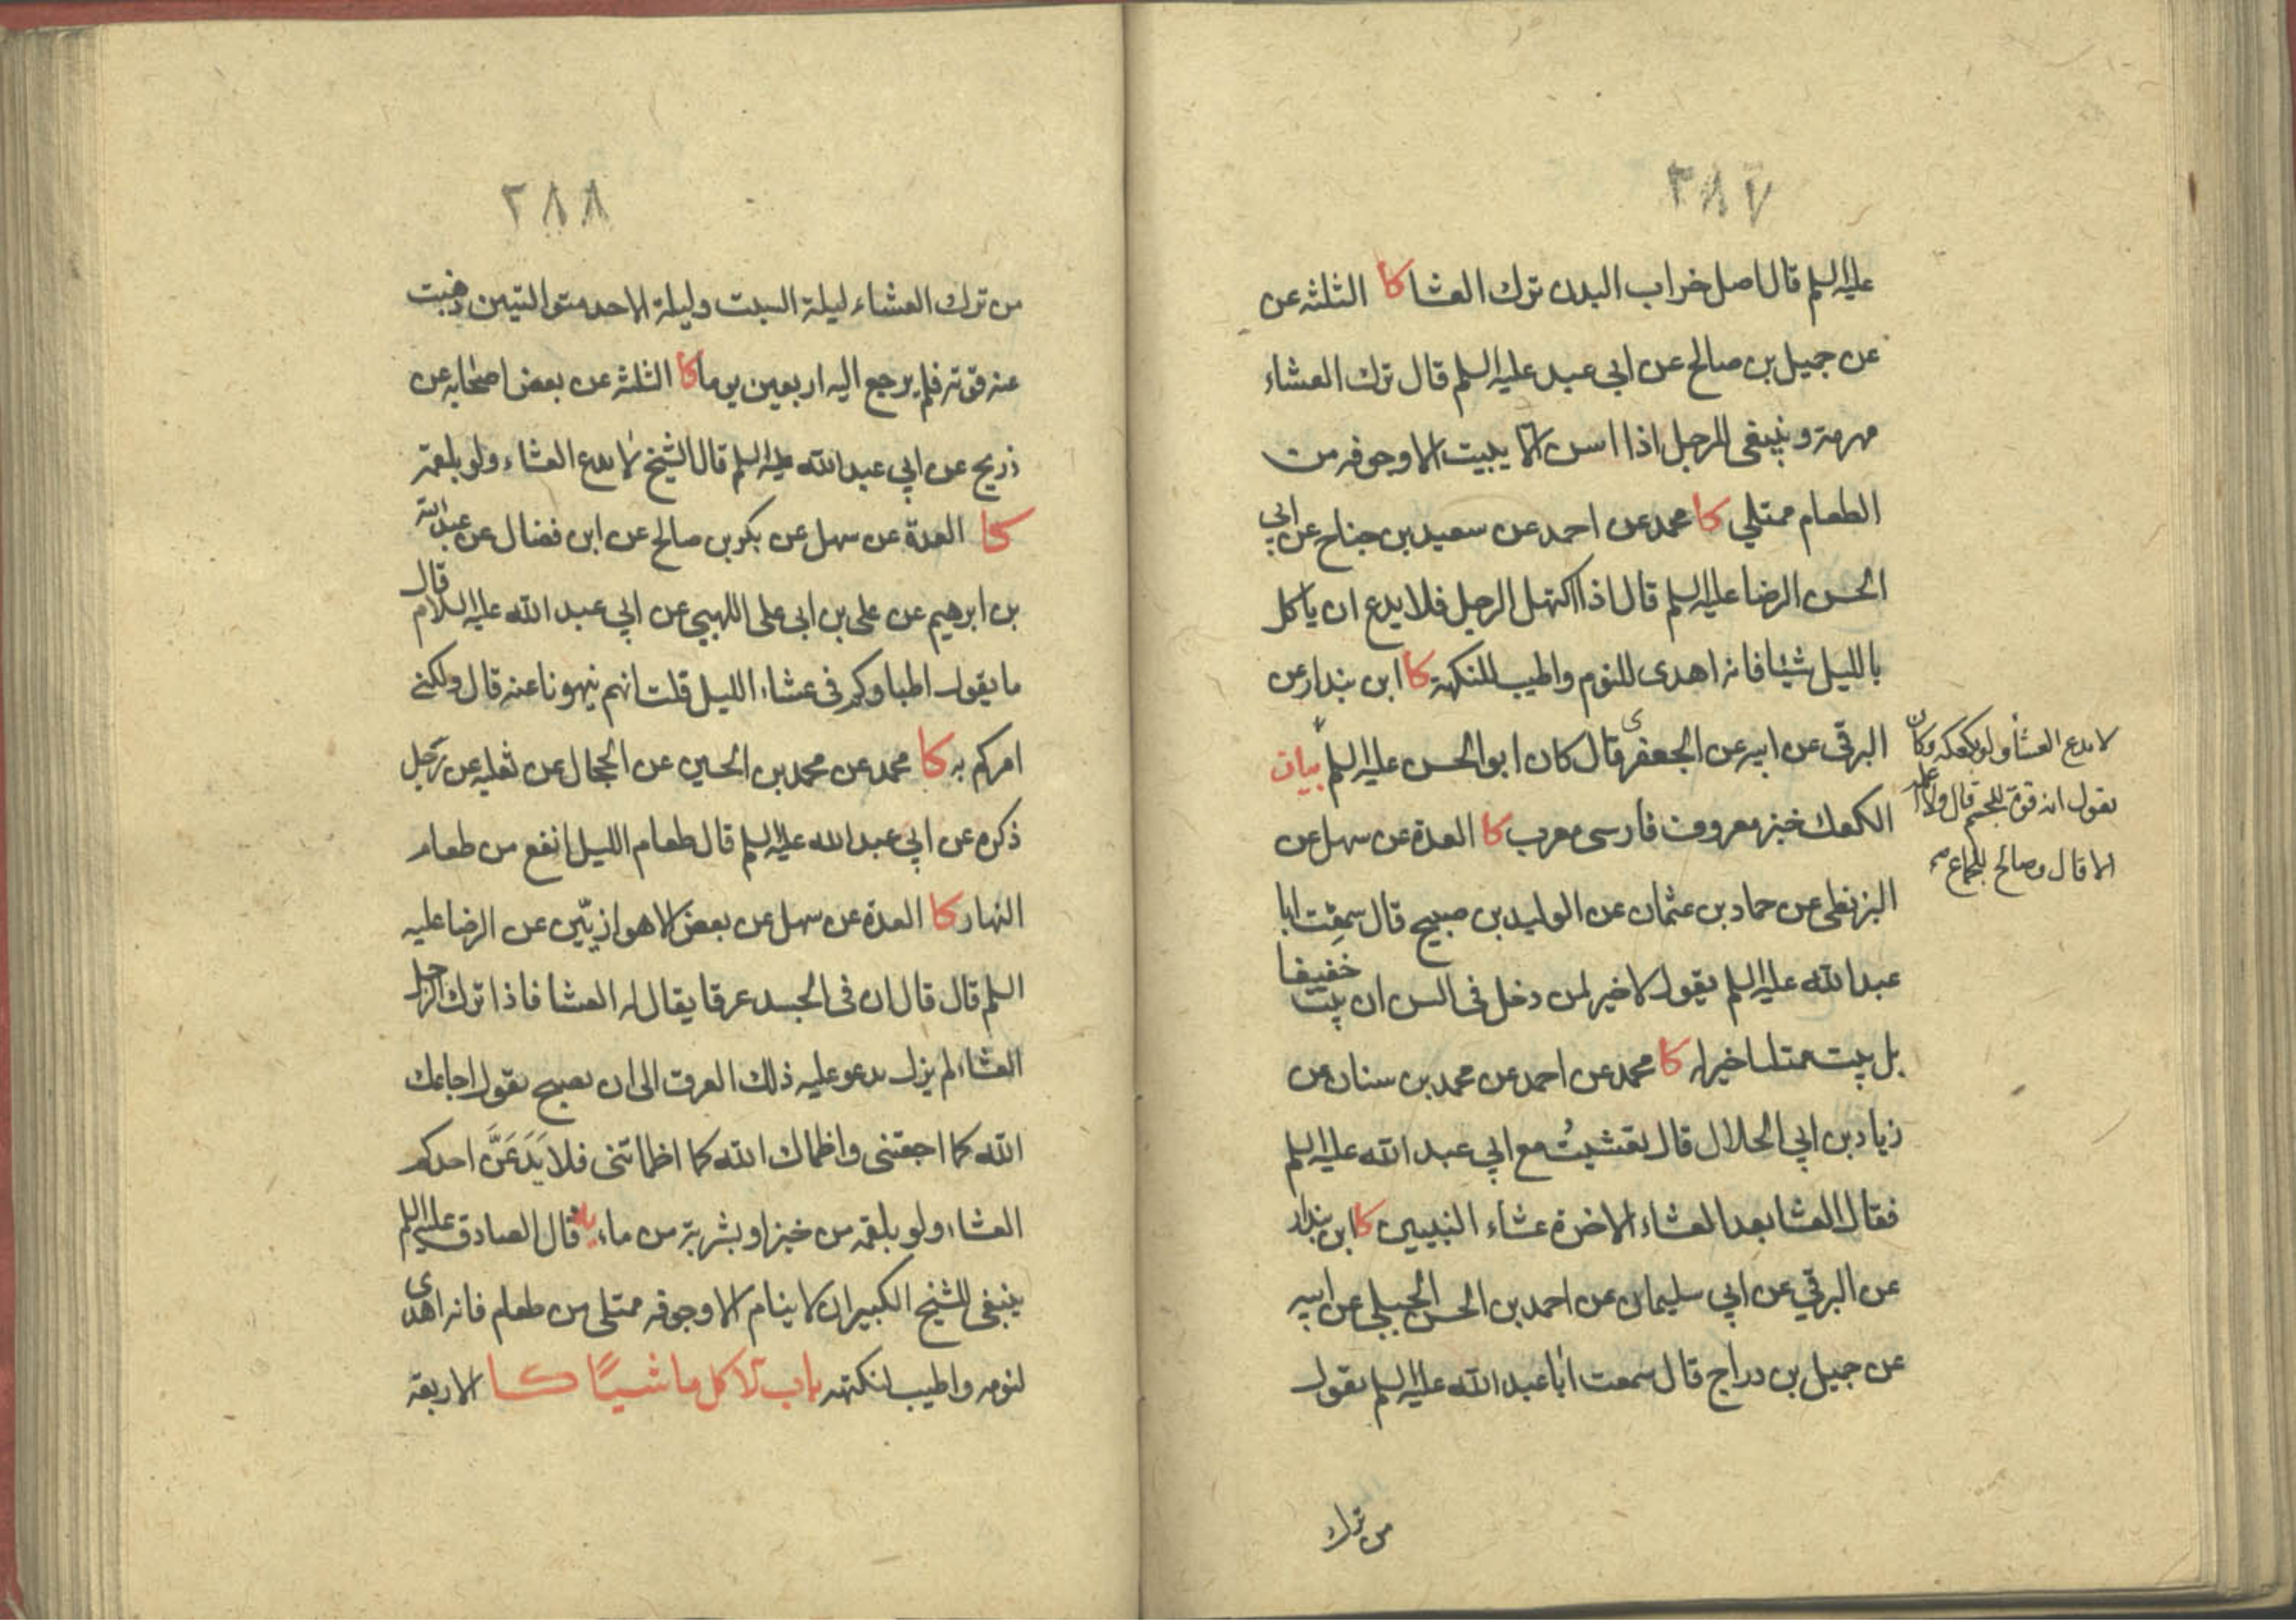 ٣٨٧
عليه السلم قال اصل خراب البدن ترك العشا كا الثلثة عن
عن جميل بن صالح عن ابي عبد عليه السلم قال ترك العشاء
مهرمة و ينبغي للرجل اذا اسن الا يبيت الا وجوفه من
الطعام ممتلي كا محمد عن احمد عن سعيد بن جناح عن ابي
الحسن الرضا عليه السلم قال اذا اكتهل الرجل فلا يدع ان ياكل
بالليل شيئا فانه اهدى للنوم واطيب للنكهة كا ابن بندار عن
البرقي عن ابيه عن الجعفرى قال كان ابو الحسن عليه السلم بيان
لا يدع العشأ ولو بكعكه وكان
يقول انه قوة للجسم قال ولا اعلمه
الا قال وصالح للجماع صح
الكعك خبز معروف فارسى معرب كا العدة عن سهل عن
البزنطى عن حماد بن عثمان عن الوليد بن صبيح قال سمعت ابا
عبد الله عليه السلم يقول لا خير لمن دخل في السن ان يبت خفيفا
بل يبيت ممتليا خير له كا محمد عن احمد عن محمد بن سنان عن
زياد بن ابي الحلال قال تعشيتُ مع ابي عبد الله عليه السلم
فقال العشا بعد العشاء الاخرة عشاء النبيين كا ابن بندار
عن البرقي عن ابي سليمان عن احمد بن الحسن الجبلي عن ابيه
عن جميل بن دراج قال سمعت ابا عبد الله عليه السلم يقول
من ترك
٣٨٨
من ترك العشاء ليلة السبت وليلة الاحد متواليتين ذهبت
عنه قوته فلم يرجع اليه اربعين يوما كا الثلثة عن بعض اصحابه عن
ذريح عن ابي عبد الله عليه السلم قال الشيخ لا يدع العشاء ولو بلقمة
كا العدة عن سهل عن بكر بن صالح عن ابن فضال عن عبد الله
بن ابرهيم عن على بن ابى على اللهبي عن ابي عبد الله عليه السلام قال
ما يقول اطباوكم فى عشاء الليل قلت انهم ينهونا عنه قال ولكنى
امركم به كا محمد عن محمد بن الحسين عن الحجال عن ثعلبه عن رجل
ذكره عن ابي عبد الله عليه السلم قال طعام الليل انفع من طعام
النهار كا العدة عن سهل عن بعض الاهوازيّين عن الرضا عليه
السلم قال قال ان فى الجسد عرقا يقال له العشا فاذا ترك الرجل
العشاء لم يزل يدعو عليه ذلك العرق الى ان يصبح يقول اجاعك
الله كما اجعتنى واظماك الله كما اظماتنى فلا يَدَعَنَّ احدكم
العشاء ولو بلقمة من خبز او بشربة من ماء يه قال الصادق عليه السلم
ينبغى للشيخ الكبير ان لا ينام الا وجوفه ممتلى من طعام فانه اهدى
لنومه واطيب لنكهته باب الاكل ماشيًا كا الاربعة